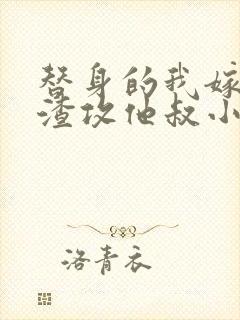 替身的我嫁
渣攻他叔小
洛青衣